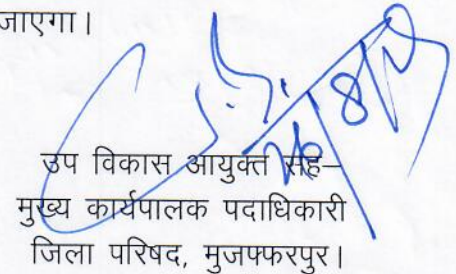 जाएगा।
उप विकास आयुक्त सह–
मुख्य कार्यपालक पदाधिकारी
जिला परिषद, मुजफ्फरपुर।